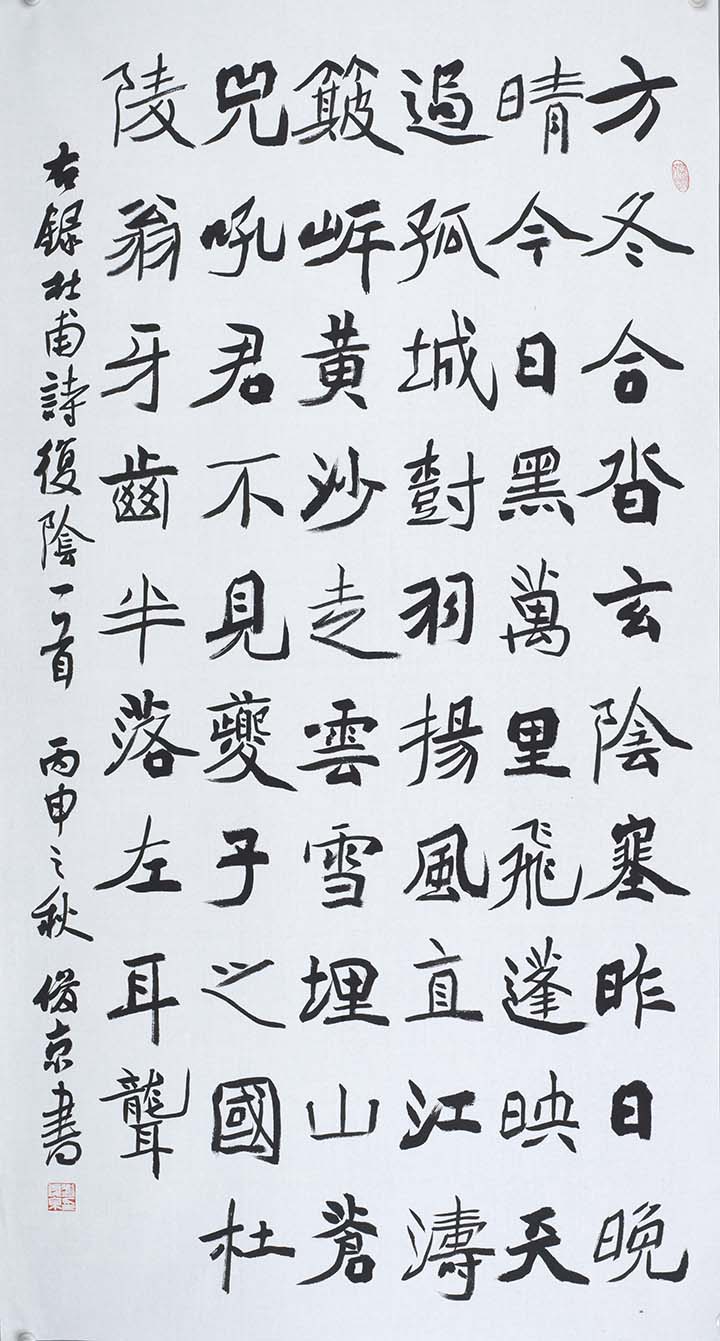 方冬合沓玄陰塞昨日晚
晴今日黑萬里飛蓬映天
過孤城樹羽揚風直江濤
簸岸黄沙走雲雪埋山蒼
兕吼君不見夔子之國杜
陵翁牙齒半落左耳聾
右録杜甫詩復陰一首 丙申之秋 俊京書